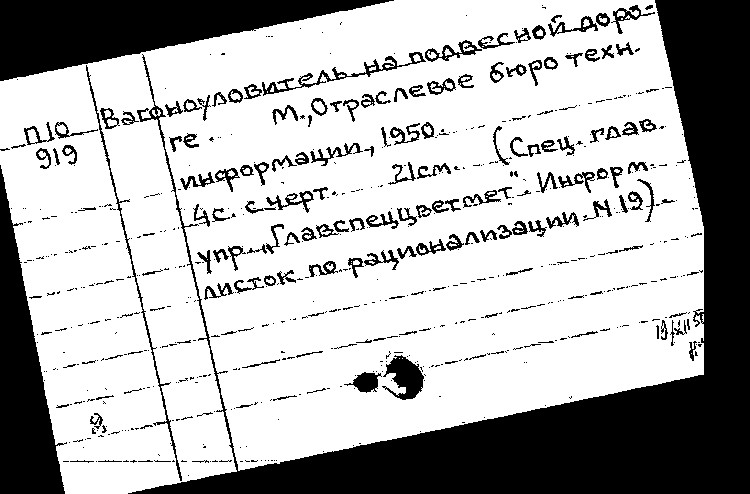 П10
919
Вагоноуловитель на подвесной доро-
ге. М., Отраслевое бюро техн.
информации, 1950.
4с. с черт. 21см. (Спец. глав.
упр. „Главспеццветмет". Информ.
листок по рационализации N 19).